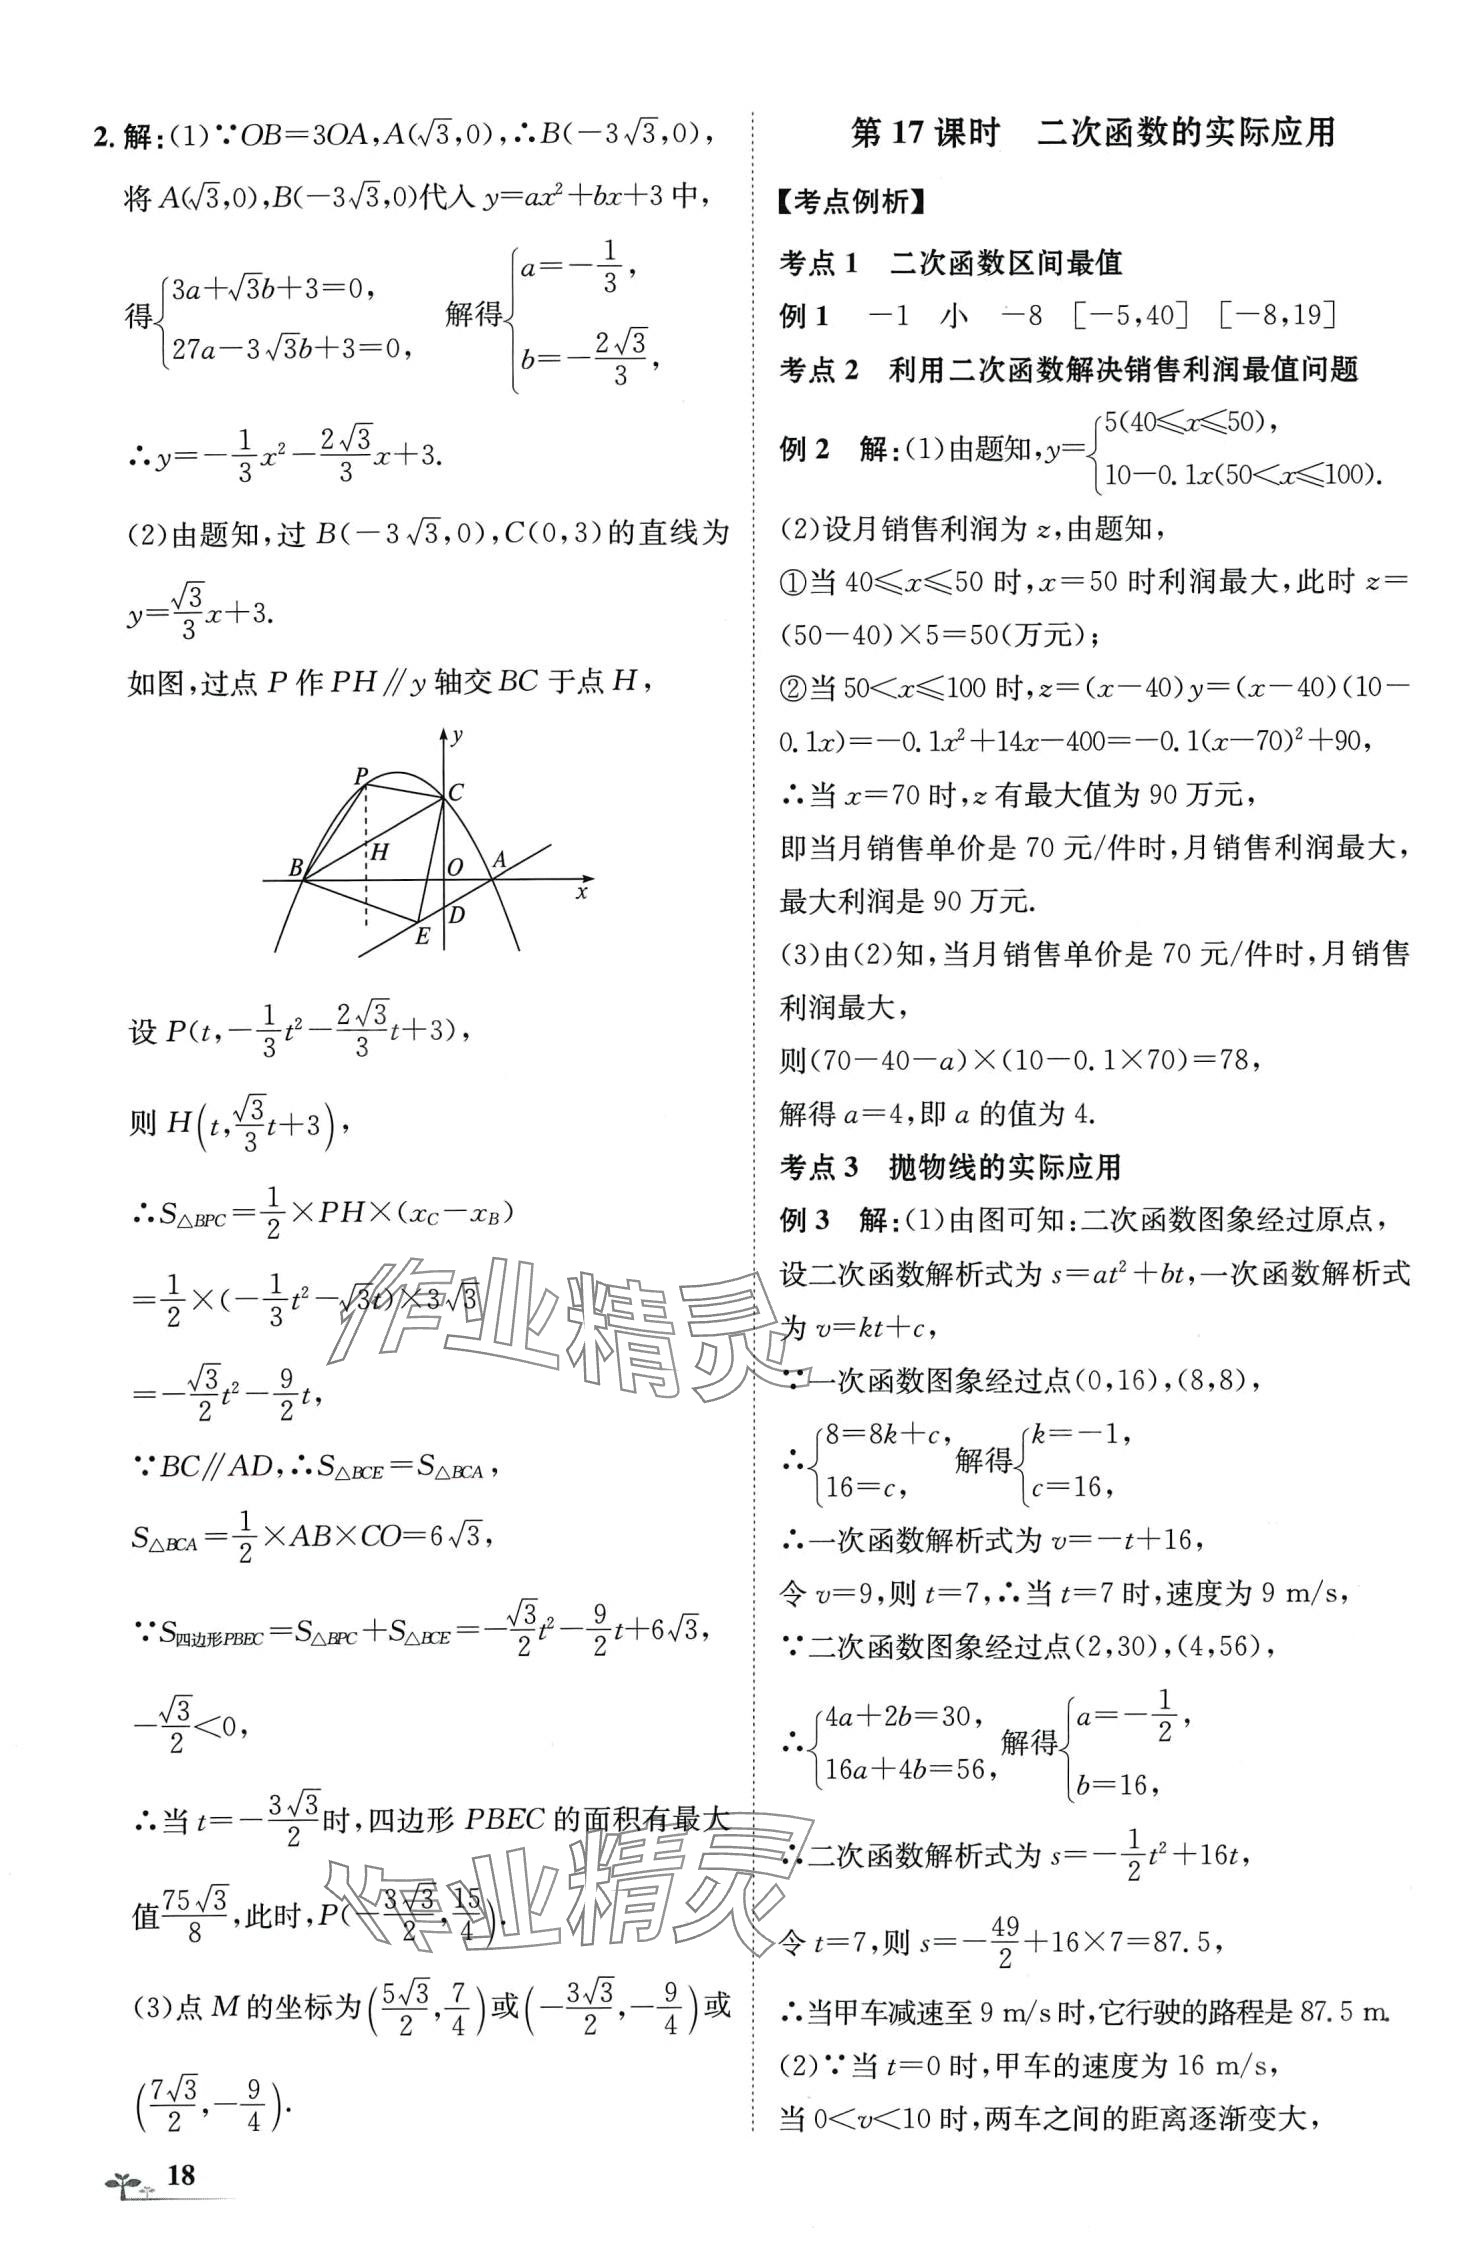 2. 解:(1)∵OB=3OA,A(√3,0),∴B(-3√3,0),
将A(√3,0),B(-3√3,0)代入y=ax²+bx+3中,
得{3a+√3b+3=0, 27a-3√3b+3=0, 解得{a=-1/3, b=-2√3/3,
∴y=-1/3x²-2√3/3x+3.
(2)由题知,过B(-3√3,0),C(0,3)的直线为
y=√3/3x+3.
如图,过点P作PH∥y轴交BC于点H,
y
P
C
H
B
O
A
x
D
E
设P(t,-1/3t²-2√3/3t+3),
则H(t,√3/3t+3),
∴S△BPC=1/2×PH×(xC-xB)
=1/2×(-1/3t²-√3t)×3√3
=-√3/2t²-9/2t,
∵BC∥AD,∴S△BCE=S△BCA,
S△BCA=1/2×AB×CO=6√3,
∵S四边形PBEC=S△BPC+S△BCE=-√3/2t²-9/2t+6√3,
-√3/2<0,
∴当t=-3√3/2时,四边形PBEC的面积有最大
值75√3/8,此时,P(-3√3/2,15/4).
(3)点M的坐标为(5√3/2,7/4)或(-3√3/2,-9/4)或
(7√3/2,-9/4).
18
第17课时 二次函数的实际应用
【考点例析】
考点1 二次函数区间最值
例1 -1 小 -8 [-5,40] [-8,19]
考点2 利用二次函数解决销售利润最值问题
例2 解:(1)由题知,y={5(40≤x≤50), 10-0.1x(50<x≤100).
(2)设月销售利润为z,由题知,
①当40≤x≤50时,x=50时利润最大,此时z=
(50-40)×5=50(万元);
②当50<x≤100时,z=(x-40)y=(x-40)(10-
0.1x)=-0.1x²+14x-400=-0.1(x-70)²+90,
∴当x=70时,z有最大值为90万元,
即当月销售单价是70元/件时,月销售利润最大,
最大利润是90万元.
(3)由(2)知,当月销售单价是70元/件时,月销售
利润最大,
则(70-40-a)×(10-0.1×70)=78,
解得a=4,即a的值为4.
考点3 抛物线的实际应用
例3 解:(1)由图可知:二次函数图象经过原点,
设二次函数解析式为s=at²+bt,一次函数解析式
为v=kt+c,
∵一次函数图象经过点(0,16),(8,8),
∴{8=8k+c, 16=c, 解得{k=-1, c=16,
∴一次函数解析式为v=-t+16,
令v=9,则t=7,∴当t=7时,速度为9 m/s,
∵二次函数图象经过点(2,30),(4,56),
∴{4a+2b=30, 16a+4b=56, 解得{a=-1/2, b=16,
∴二次函数解析式为s=-1/2t²+16t,
令t=7,则s=-49/2+16×7=87.5,
∴当甲车减速至9 m/s时,它行驶的路程是87.5 m.
(2)∵当t=0时,甲车的速度为16 m/s,
当0<v<10时,两车之间的距离逐渐变大,
作业精灵
作业精灵